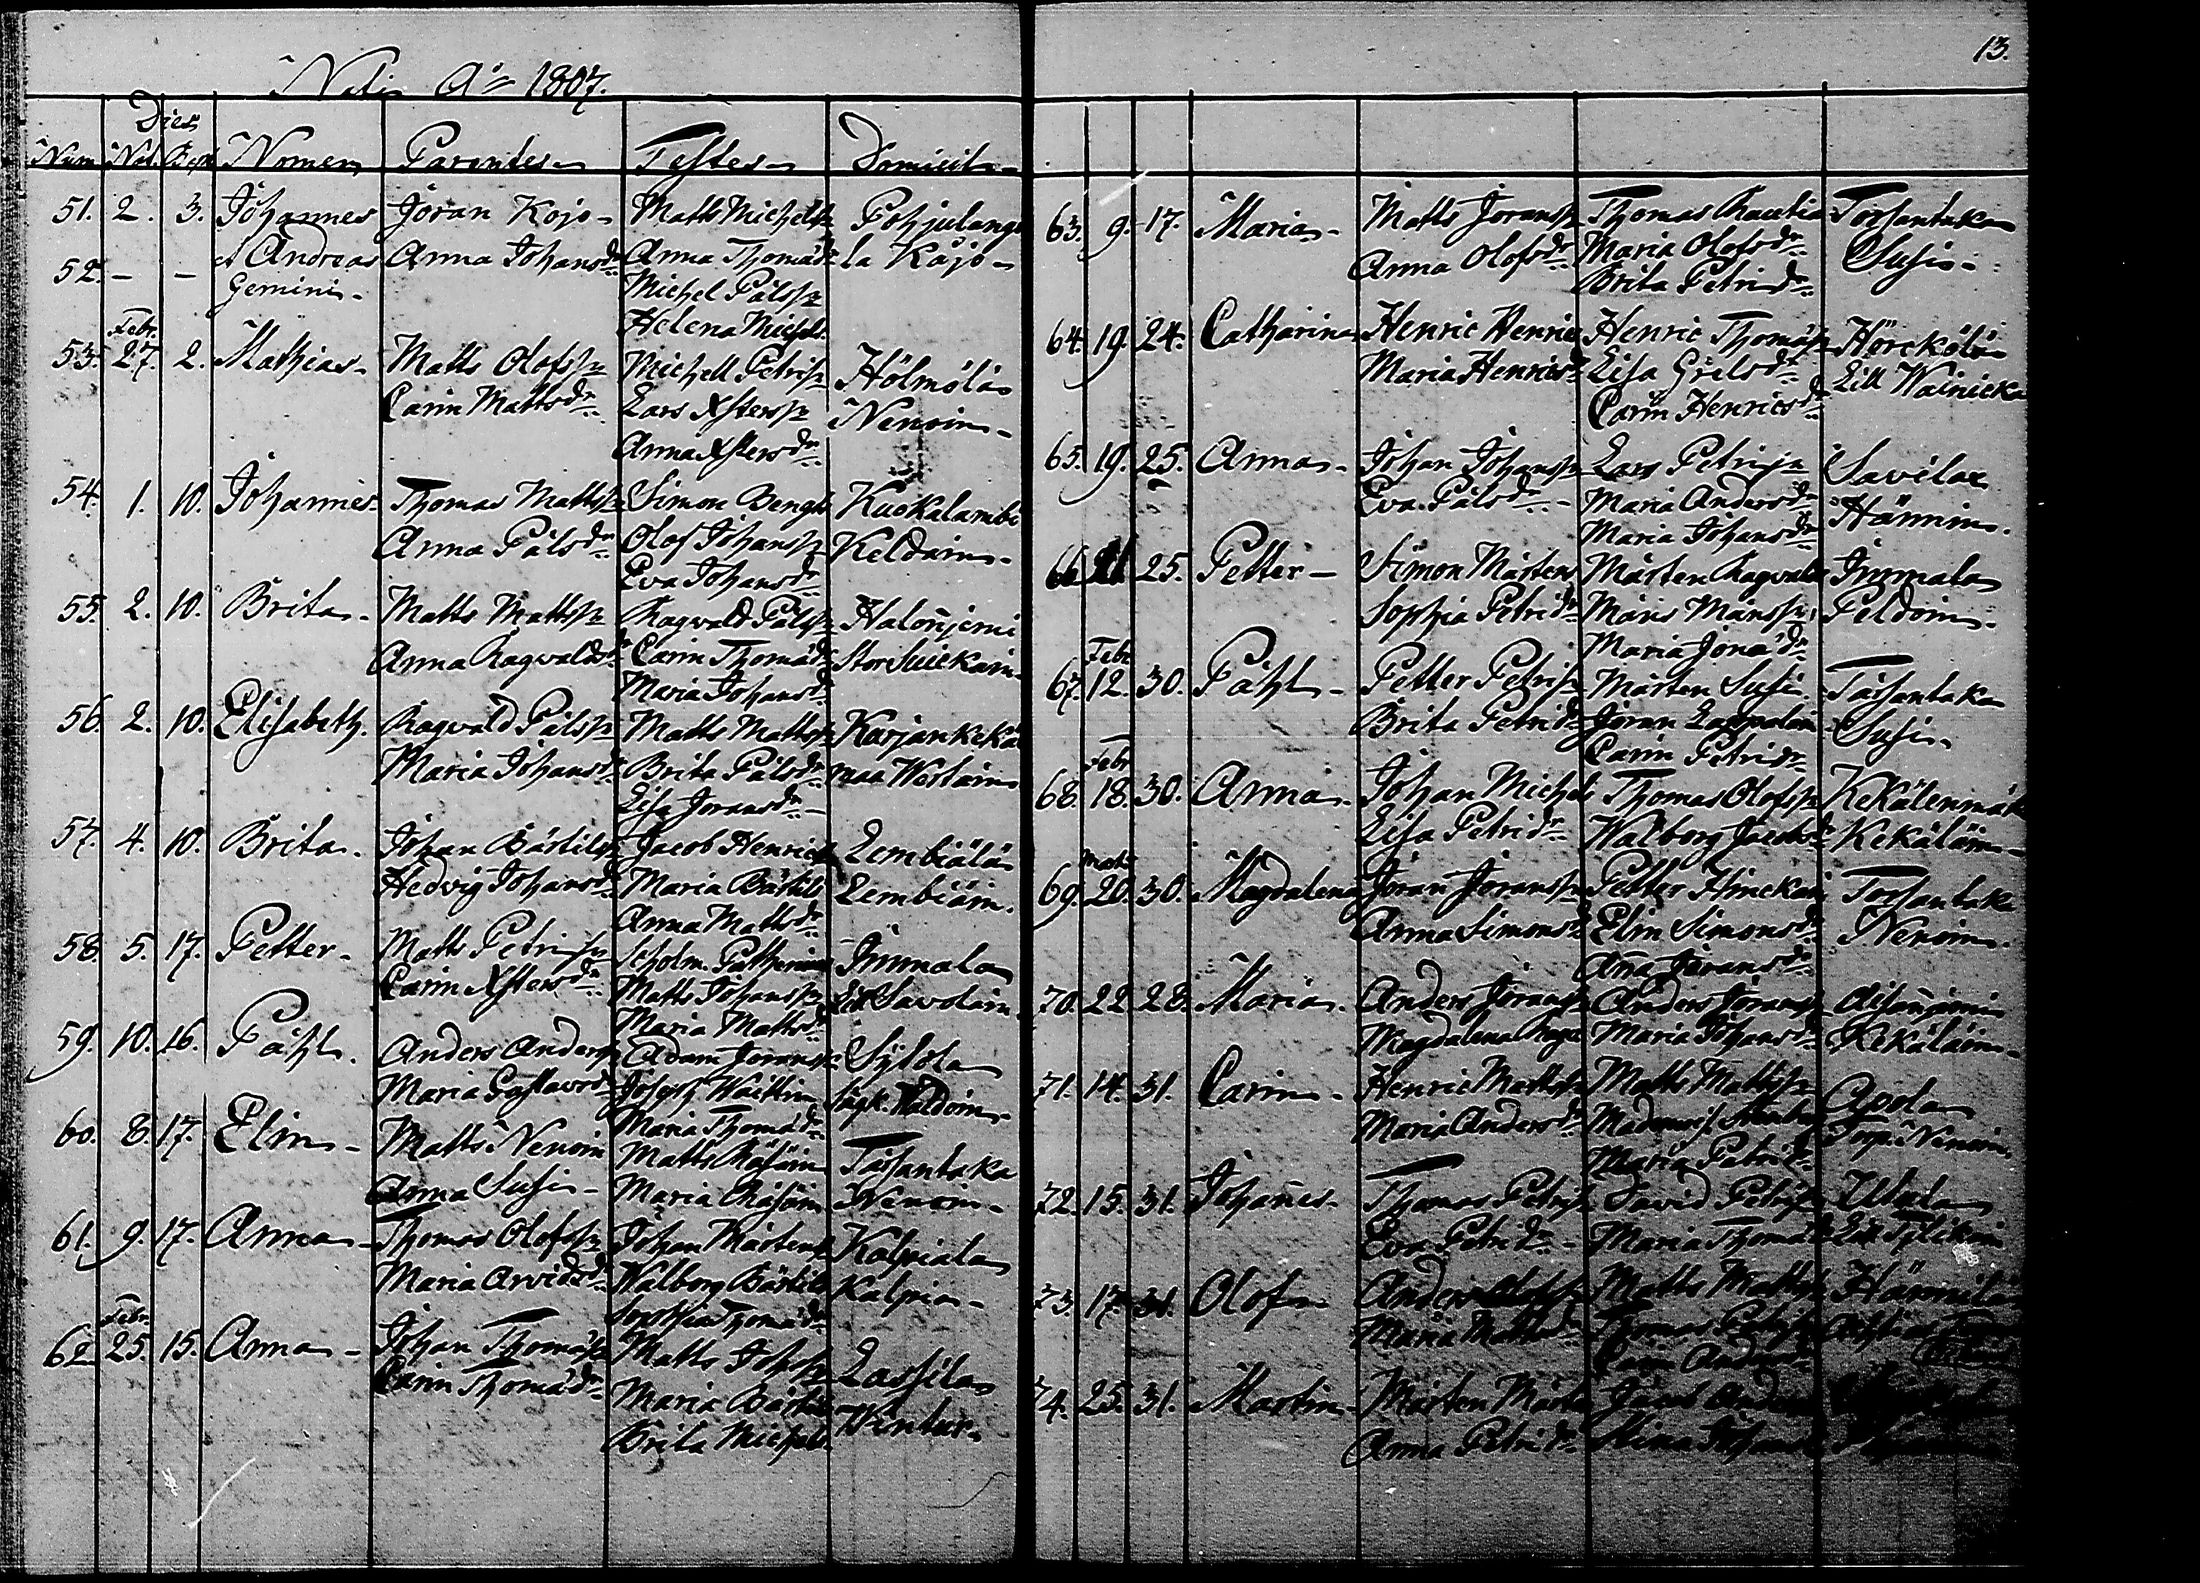 Nati Aō 1807.
Dies
Num Nat. Bapt Nomen Parentes Testes Domicil
51. 2. 3. Johannes Jöran Kojo Matts Michelss: Pohjulange
52. — — et Andreas Anna Johansdr Anna Thomædr la Kojo
Gemini. Michel Pålss:
Helena Michels.
Febr.
53. 27. 2. Mathias Matts Olofss: Michell Petriss: Hölmölä
Carin Mattsdr Lars Xsterss: Nevoin
Anna Xstersdr
54. 1. 10. Johannes Thomas Mattss: Simon Bengts Kuokalambi
Anna Pålsdr Olof Johanss: Keldoin
Eva Johansdr
55. 2. 10. Brita Matts Mattss: Ragvald Pålss: Halonjemi
Anna Ragvaldsdr Carin Thomædr Stor Suickain
Maria Johansdr
56. 2. 10. Elisabeth. Ragvald Pålss: Matts Mattss: Karjankekä
Maria Johansdr Brita Pålsdr maa Westain
Lisa Joransdr
57. 4. 10. Brita Johan Bärtilss: Jacob Henricss: Lembiälä
Hedvig Johansdr Maria Bärtils Lembiäin.
Anna Mattsdr
58. 5. 17. Petter Matts Petriss: Scholm. Immala
Carin Xstersdr Matts Johanss: Lill Savolain
Maria Mattsdr
59. 10. 16. Påhl. Anders Anderss: Adam Joranss: Sylola
Maria Gustavsdr Joseph
Maria Thomædr
60. 8. 17. Elin Matts Nevoin Matts Räsäin Tarsantaka
Anna Susi Maria Räsäin Nevoin
61. 9. 17. Anna Thomas Olofss: Johan Martenss: Kalpiala
Maria Arvidsdr Walborg Bärtils Kalpia
Sophia Thomædr
Febr.
62. 25. 15. Anna Johan Thomæss: Matts Johss: Lassila
Carin Thomædr Maria Bärtils Wentur
Brita Michels
13.
63. 9. 17. Maria Matts Joranss: Thomas Rautia Torsantaka
Anna Olofsdr Maria Olofsdr Susi
Brita Petridr
64. 19. 24. Catharina Henric Henrics Henric Thomæss: Hörckölä
Maria Henricsdr Lisa Grelsdr Lill Wainicka
Carin Henricsdr
65. 19. 25. Anna Johan Johanss: Lars Petriss: Savilax
Eva Pålsdr Maria Andersdr Hännin.
Maria Johansdr
66. 21 25. Petter Simon Mårtens Mårten Ragvalds Immala
Sophia Petridr Måns Mansss: Peldoin
Maria Jonædr
Febr
67. 12. 30. Påhl Petter Petriss: Mårten Susi Tarsantaka
Brita Petridr Jöran Lappalain Susi
Carin Petridr
Febr
68. 18. 30. Anna Johan Michels Thomas Olofss: Kekälenmäk
Lisa Petridr Walborg Jacobsdr Kekäläin
Mart
69. 20. 30. Magdalena Jöran Joranss: Petter Hinckain Torsantaka
Anna Simonsdr Elin Simonsdr Nevoin
Aña Joransdr
70. 22. 28. Maria Anders Joranss: Anders Joranss:
Magdalena Maria Johansdr Kekäläin
71. 14. 31. Carin Henric Mattss: Matts Mattss: Apola
Maria Andersdr Nevoin
Maria Petridr
72. 15. 31. Johañes Thomas Petriss: David Petriss: Uhula
Eva Petridr Maria Thomædr Lill
73. 17. 31. Olof Anders Olofss: Matts Mattss: Hännilä
Maria Mattsdr Thomas Petriss:
Carin Andersdr
74. 25. 31. Martin Mårten Mårtens Jacob Anders
Anna Petridr Stina Johansdr